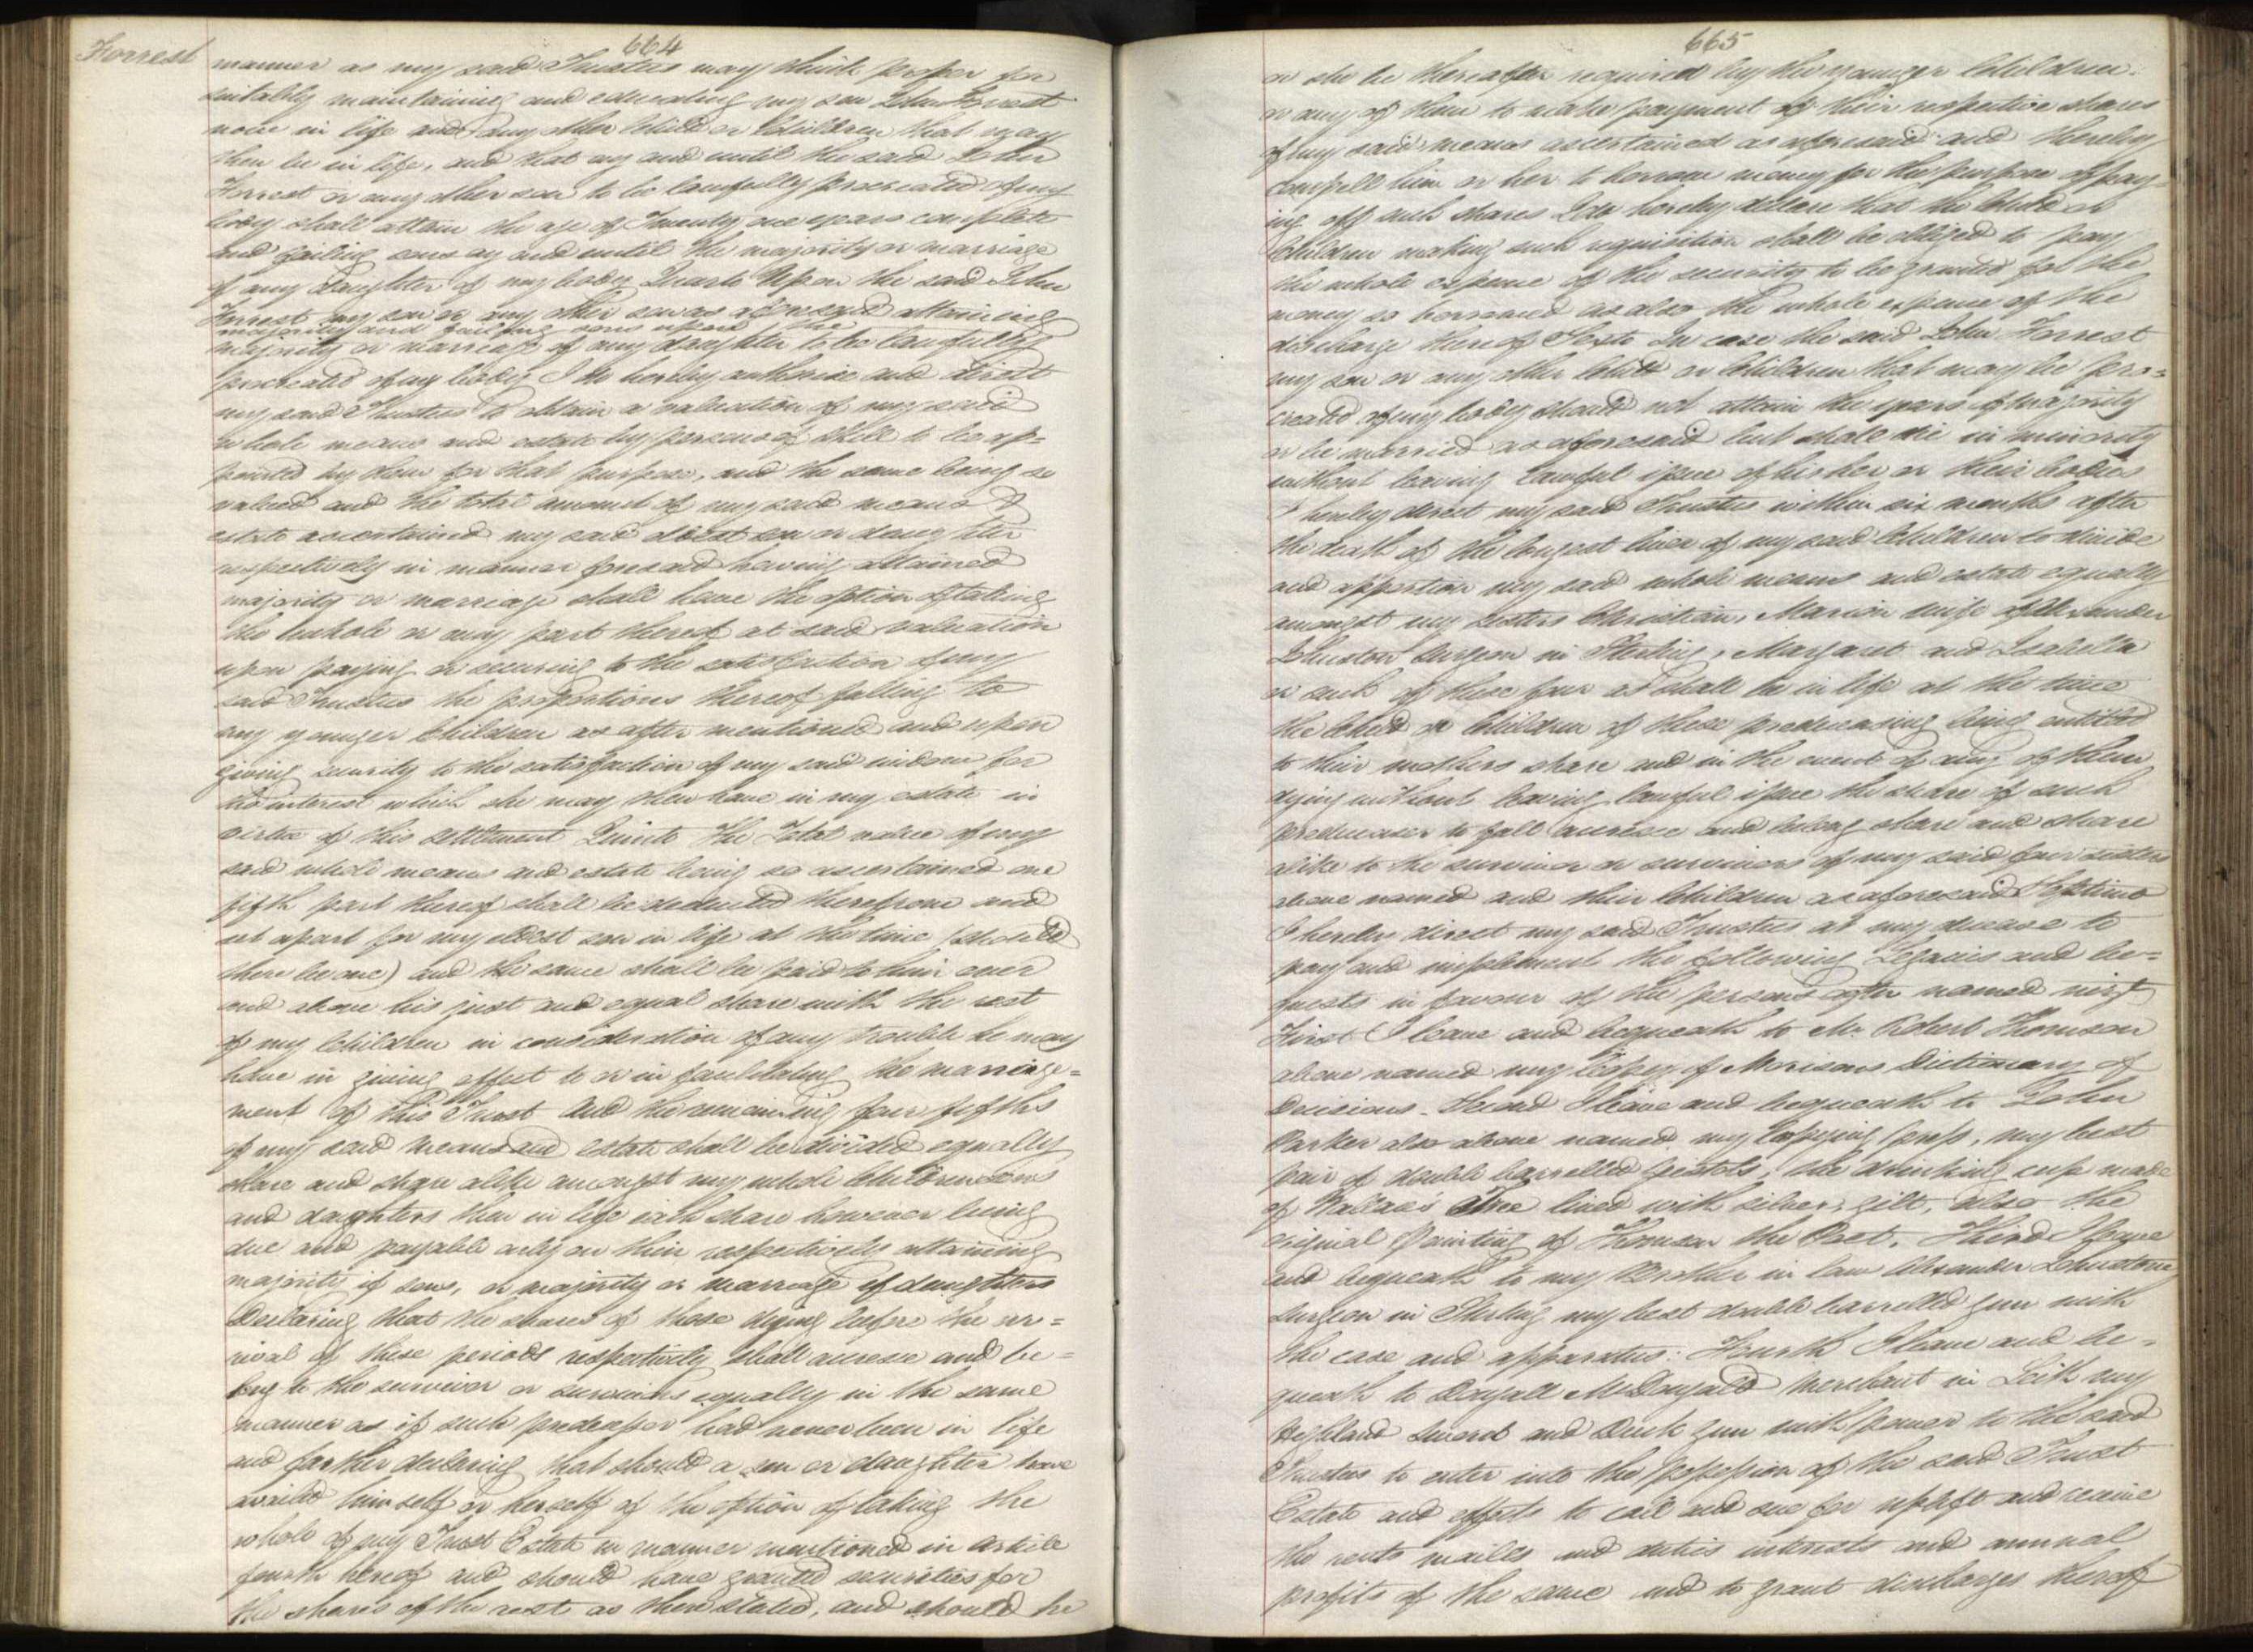 Forrest
664
manner as my said Trustees may think proper for
suitably maintaining and educating my son John Forrest
now in life and any other Child or Children that may
then be in life, and that ay and until the said John
Forrest or any other son to be lawfully procreated of my
body shall attain the age of Twenty one years complete
and failing sons ay and until the majority or marriage
of any daughter of my body Quarto Upon the said John
Forrest my son or any other son as aforesaid attaining
majority and failing sons upon the
majority or marriage of any daughter to be lawfully
procreated of my body I do hereby authorise and direct
my said Trustees to obtain a valuation of my said
whole means and estate by persons of skill to be ap=
pointed by them for that purpose, and the same being so
valued and the total amount of my said means &
estate ascertained my said eldest son or daughter
respectively in manner foresaid having attained
majority or marriage shall have the option of taking
the whole or any part thereof at said valuation
upon paying or securing to the satisfaction of my
said Trustees the proportions thereof falling to
my younger Children as after mentioned and upon
giving security to the satisfaction of my said widow for
the interest which she may then have in my estate in
virtue of this settlement Quinto The Total value of my
said whole means and estate being so ascertained one
fifth part thereof shall be deducted therefrom and
set apart for my eldest son in life at the time (should
there be one) and the same shall be paid to him over
and above his just and equal share with the rest
of my Children in consideration of any trouble he may
have in giving effect to or in facilitating the marringe=
ment of this Trust And the remaining four fifths
of my said means and estate shall be divided equally
share and share alike amongst my whole Children sons
and daughters then in life each share however being
due and payable only on their respectively attaining
majority if sons, or majority or marriage if daughters
Declaring that the shares of those dying before the ar=
rival of these periods respectively shall accresce and be=
long to the survivor or survivors equally in the same
manner as if such predecessor had never been in life
and farther declaring that should a son or daughter have
availed himself or herself of the option of taking the
whole of my Trust Estate in manner mentioned in Article
fourth hereof and should have granted securities for
the shares of the rest as there stated, and should he
665
or she be thereafter required by the younger Children
or any of them to make payment of their respective shares
of my said means ascertained as aforesaid and thereby
compell him or her to borrow money for the purpose of pay=
ing off such shares I do hereby declare that the Child or
Children making such requisition shall be obliged to pay
the whole expense of the security to be granted for the
money so borrowed as also the whole expense of the
discharge thereof Sexto In case the said John Forrest
my son or any other Child or Children that may be pro=
created of my body should not attain the years of majority
or be married as aforesaid but shall die in minority
without leaving lawful issue of his her or their bodies
I hereby direct my said Trustees within six months after
the death of the longest liver of my said Children to divide
and apportion my said whole means and estate equally
amongst my sisters Christian, Marion wife of Alexander
Johnston Surgeon in Sterling, Margaret and Isabella
or such of these four as shall be in life at the time
the Child or Children of those predeceasing being entitled
to their mothers share and in the event of any of them
dying without leaving lawful issue the share of such
predeceaser to fall accresce and belong share and share
alike to the survivor or survivors of my said four sisters
above named and their Children as aforesaid Septimo
I hereby direct my said Trustees at my decease to
pay and implement the following Legacies and be=
quests in favour of the persons after named vizt.
First I leave and bequeath to Mr. Robert Thomson
above named my Copy of Morisons Dictionary of
Decisions. Second I leave and bequeath to John
Parker also above named my Copying press, my best
pair of double barrelled pistols, the drinking cup made
of Wallace's Tree lined with silver, gilt, also the
original Painting of Thomson the Poet. Third I leave
and bequeath to my Brother in law Alexander Johnstone
Surgeon in Stirling my best double barrelled gun with
the case and apparatus: Fourth I leave and be=
queath to Dougall McDougald Merchant in Leith my
Highland Sword and Duck gun with power to the said
Trustees to enter into the possession of the said Trust
Estate and effects to call and sue for uplift and receive
the rents mailles and duties interests and annual
profits of the same and to grant discharges thereof